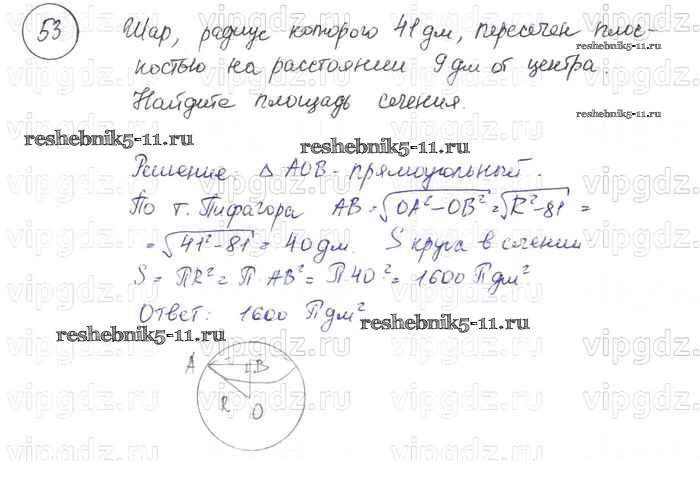 53 Шар, радиус которого 41 дм, пересечен плос-
reshebnik5-11.ru
костью на расстоянии 9 дм от центра.
Найдите площадь сечения.
reshebnik5-11.ru
reshebnik5-11.ru
reshebnik5-11.ru
Решение. △ AOB - прямоугольный.
По т. Пифагора AB = √OA²-OB² = √R²-81 =
= √41²-81 = 40 дм. S круга в сечении
S = ПR² = П·AB² = П·40² = 1600 П дм²
Ответ: 1600 П дм²
reshebnik5-11.ru
reshebnik5-11.ru
A B
R O
vipgdz.ru